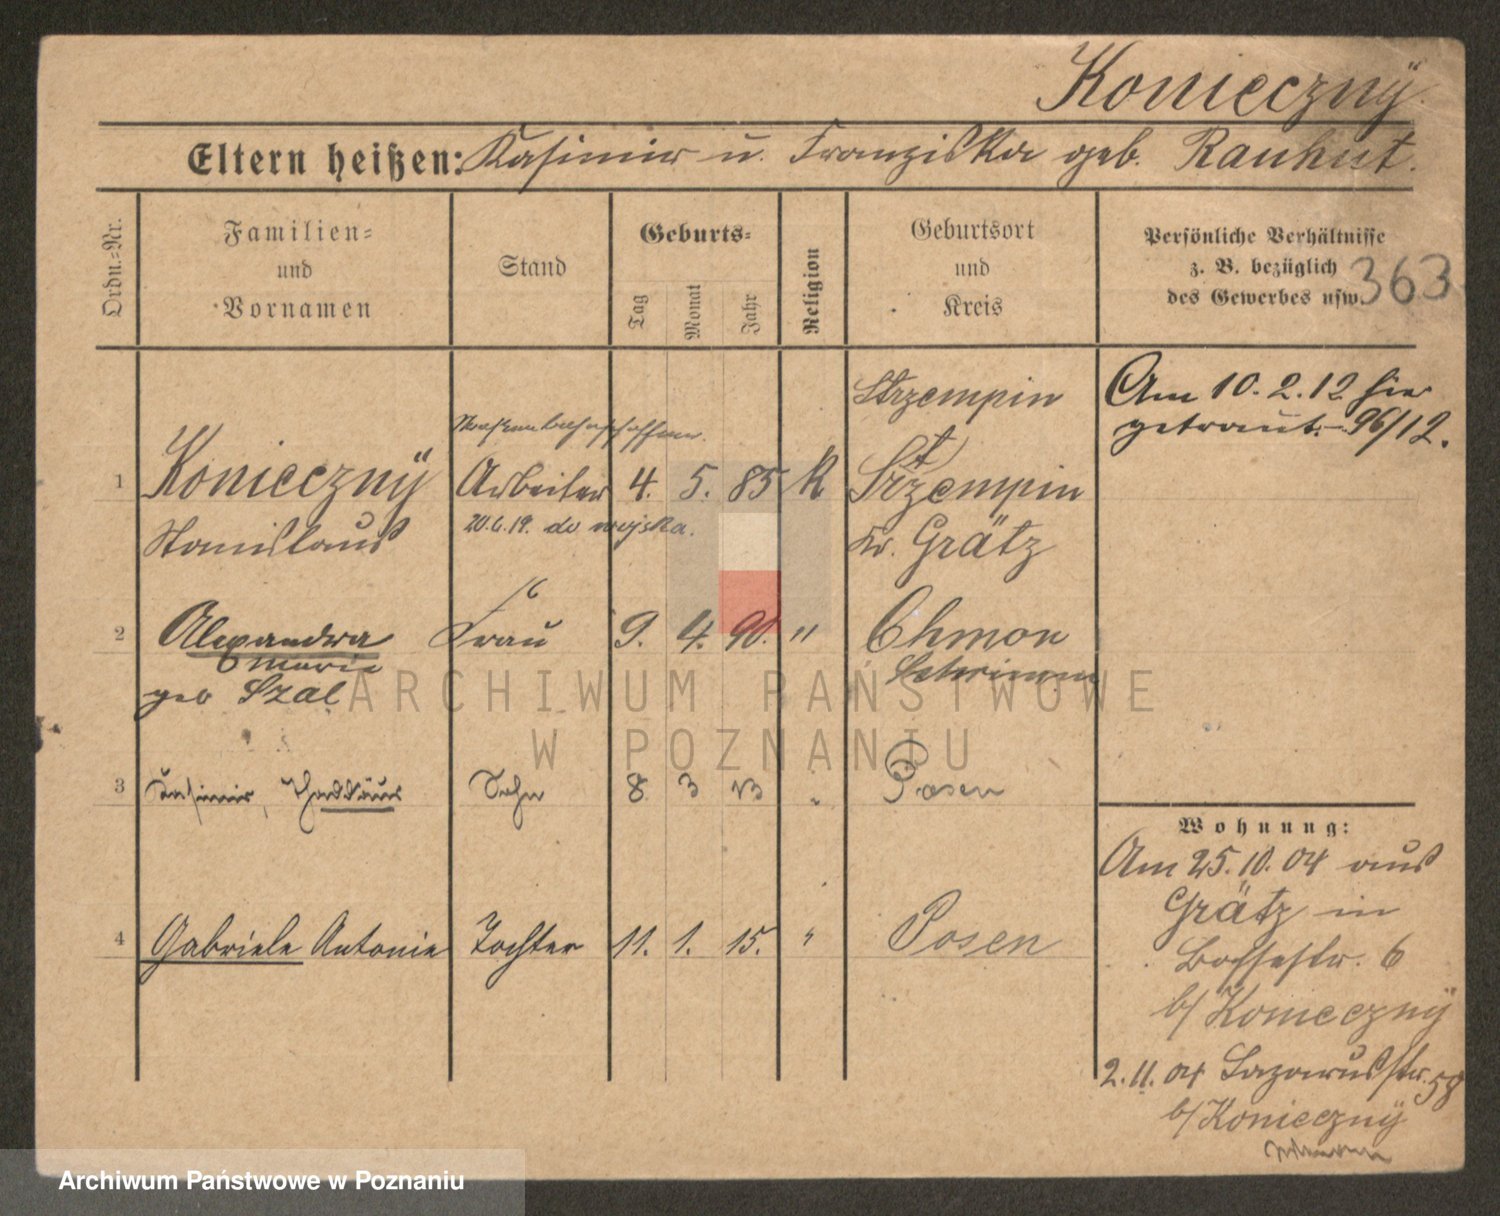 Konieczny
Eltern heißen: Kasimir u. Franziska geb. Rauhut.
Ordn.-Nr.
Familien-
und
Vornamen
Stand
Geburts-
Tag
Monat
Jahr
Religion
Geburtsort
und
Kreis
Persönliche Verhältnisse
z. B. bezüglich
des Gewerbes usw.
363
Strzempin
Am 10.2.12 hier
getraut. 96/12.
Straßenbahnschaffner.
1 Konieczny Arbeiter 4. 5. 85 K Strzempin
Stanislaus 20.6.19. do wojska. Kr. Grätz
16
2 Alexandra Frau 9. 4. 90. " Chmon
Marie Schrimm
geb Szal
3 Kasimir, Thaddäus Sohn 8 3 13 " Posen
Wohnung:
Am 25.10.04 aus
Grätz in
4 Gabriele Antonie Tochter 11. 1. 15. " Posen
6
b/ Konieczny
2.11.04 Lazarusstr. 58
b/ Konieczny
ARCHIWUM PAŃSTWOWE
W POZNANIU
Archiwum Państwowe w Poznaniu